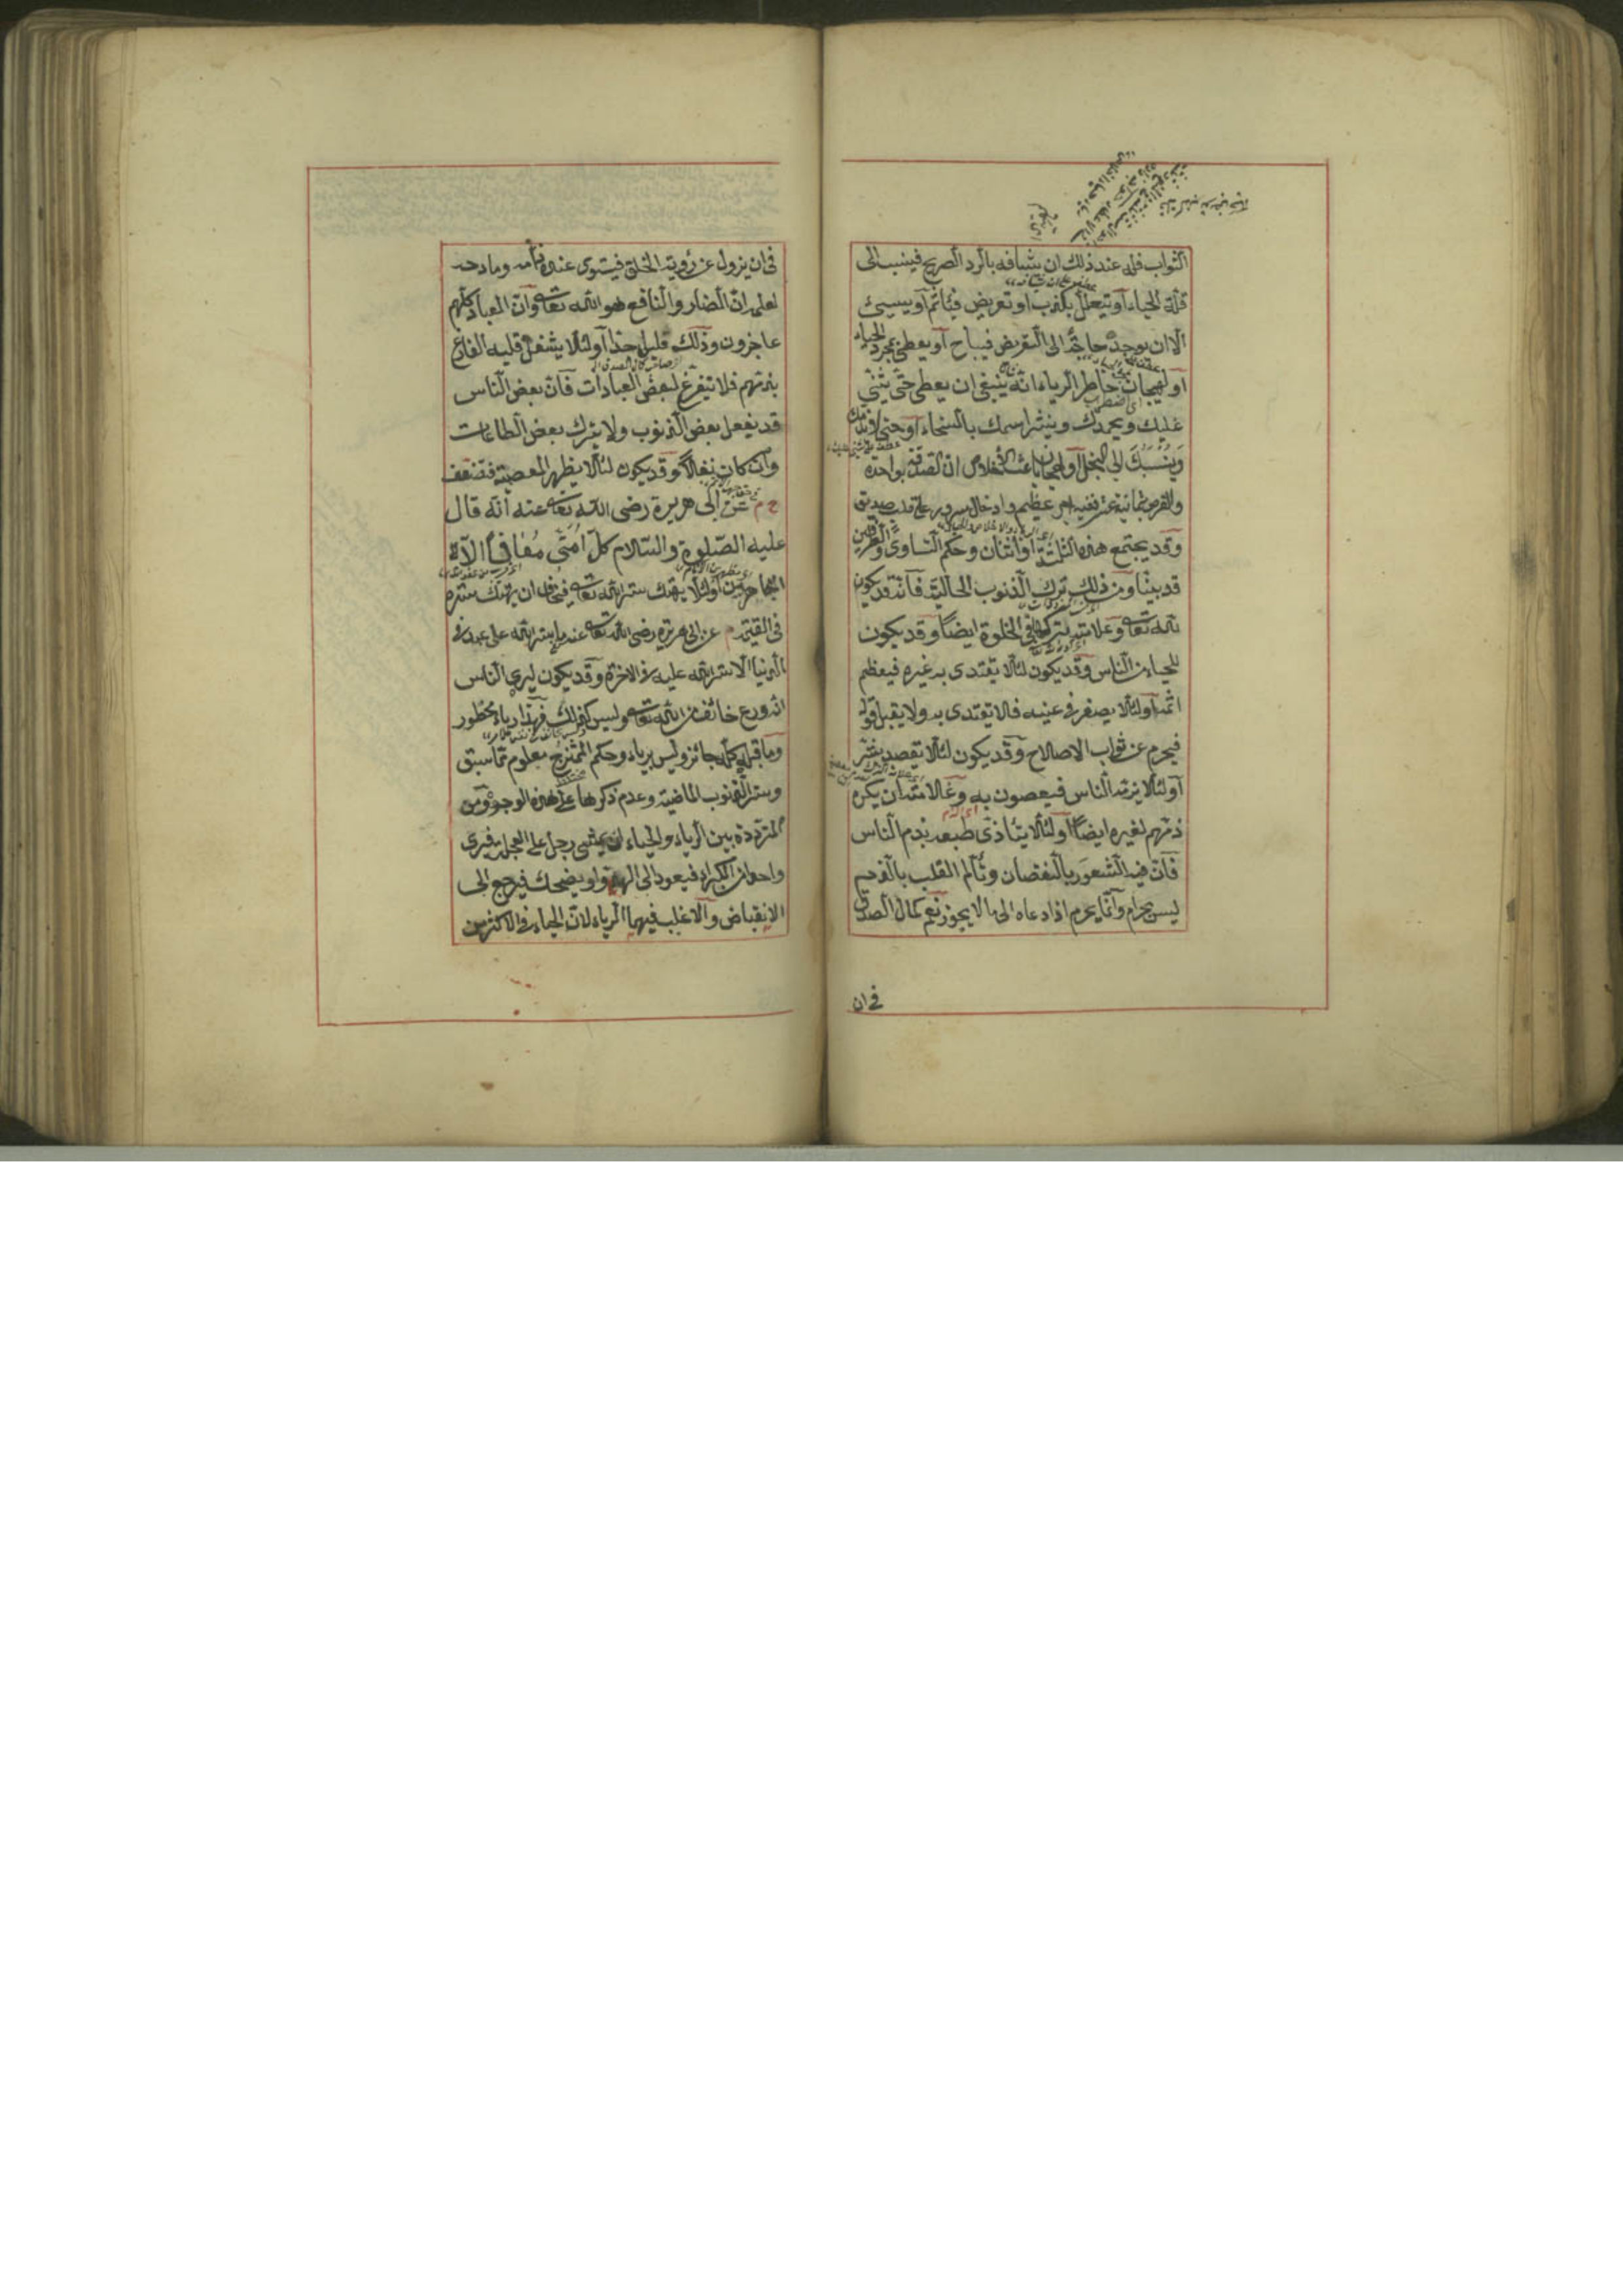 الثواب فله عند ذلك ان يشافه بالرد الصريح فينسب الى
قلة الحياء او يتعلل بكذب او تعريض فيأثم او يسيئ
الا ان يوجد حاجة الى التعريض فيباح او يعطى بمجرد الحياء
او لهيجان خاطر الرياء انه ينبغي ان يعطى حتى يثني
عليك ويحمدك وينشر اسمك بالسخاء او حتى لا يذمك
وينسبك الى البخل او لهيجان باعث الاخلاص ان الصدقة بواحدة
والقرض بثمانية عشر ففيه اجر عظيم وادخال سرور على قلب صديق
وقد يجتمع هذه الثلثة او اثنان وحكم التساوى والطرفين
قد بينا ومن ذلك ترك الذنوب الحالية فانه قد يكون
لله تعالى وعلامته تركها فى الخلوة ايضا وقد يكون
للحياء من الناس وقد يكون لئلا يقتدى به غيره فيعظم
اثمه او لئلا يصغر فى عينه فلا يقتدى به ولا يقبل قوله
فيحرم عن ثواب الاصلاح وقد يكون لئلا يقصد بشر
او لئلا يذمه الناس فيعصون به وعلامته ان يكره
ذمهم لغيره ايضا او لئلا يتأذى طبعه بذم الناس
فان فيه الشعور بالنقصان وتألم القلب بالذم
ليس بحرام وانما يحرم اذا دعاه الى ما لا يجوز نعم كمال الصدق
فى ان
فى ان يزول عن رؤية الخلق فيستوى عنده ذامه ومادحه
لعلمه ان الضار والنافع هو الله تعالى وان العباد كلهم
عاجزون وذلك قليل جدا او لئلا يشغل قلبه الفارغ
بذمهم فلا يتفرغ لبعض العبادات فان بعض الناس
قد يفعل بعض الذنوب ولا يترك بعض الطاعات
وان كان نفلا وقد يكون لئلا يظهر المعصية فتضعف
خ م عن ابى هريرة رضى الله تعالى عنه انه قال
عليه الصلوة والسلام كل امتى معافى الا
المجاهرين او لئلا يهتك ستر الله تعالى فيخاف ان يهتك ستره
فى القيمة م عن ابى هريرة رضى الله تعالى عنه ما ستر الله على عبد فى
الدنيا الا ستر الله عليه فى الاخرة وقد يكون ليرى الناس
انه ورع خائف من الله تعالى وليس كذلك فهذا رياء محظور
وما قبله كله جائز وليس برياء وحكم الممتزج معلوم مما سبق
وستر الذنوب الماضية وعدم ذكرها على هذه الوجوه ومن
المترددة بين الرياء والحياء ان يمشى رجل على العجلة فيرى
واحدا من الكبراء فيعود الى الهدو او يضحك فيرجع الى
الانقباض والاغلب فيهما الرياء لان الحياء فى الاكثر من